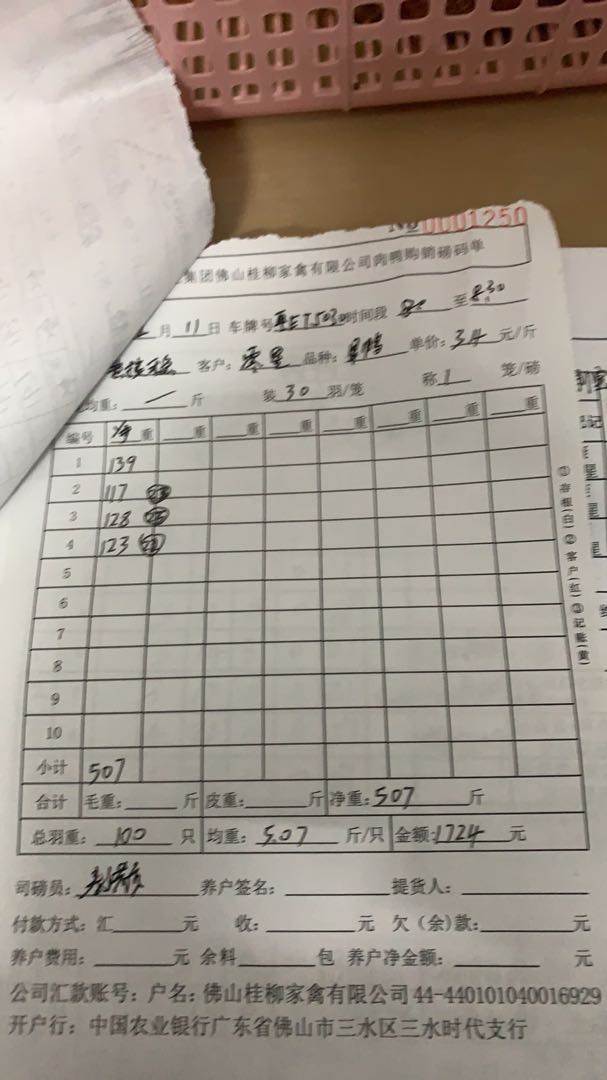 №0001250
集团佛山桂柳家禽有限公司肉鸭购销磅码单
月11日 车牌号 时间段 至8:30
客户: 品种: 单价:3.4元/斤
均重: 一 斤 装30羽/笼 称1笼/磅
编号 净重 重 重 重 重 重 重 重
1 139
2 117
3 128
4 123
5
6
7
8
9
10
小计 507
合计 毛重: 斤 皮重: 斤 净重:507斤
总羽重:100只 均重:5.07斤/只 金额:1724元
司磅员: 养户签名: 提货人:
付款方式:汇 元 收: 元 欠(余)款: 元
养户费用: 元 余料 包 养户净金额: 元
公司汇款账号:户名:佛山桂柳家禽有限公司 44-440101040016929
开户行:中国农业银行广东省佛山市三水区三水时代支行
①存根(白)②客户(红)③记账(黄)